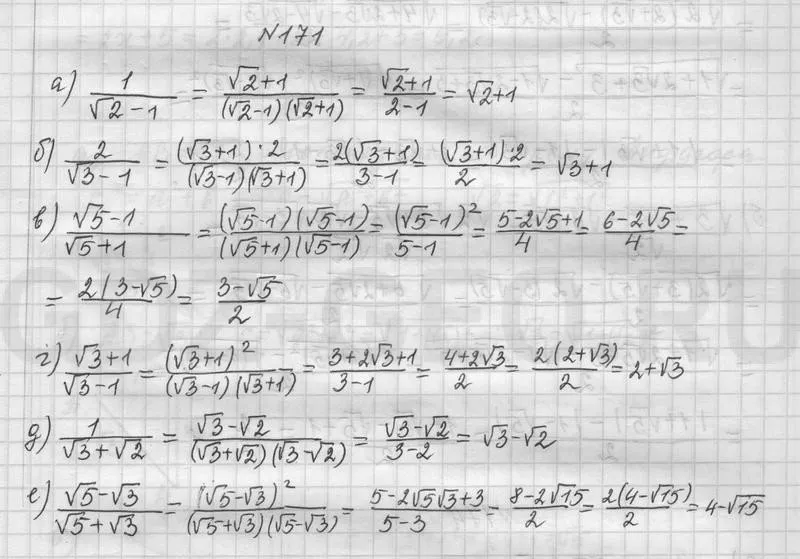 №171
а) 1/(√2 - 1) = (√2+1)/((√2-1)(√2+1)) = (√2+1)/(2-1) = √2+1
б) 2/(√3-1) = ((√3+1)·2)/((√3-1)(√3+1)) = 2(√3+1)/(3-1) = ((√3+1)·2)/2 = √3+1
в) (√5-1)/(√5+1) = ((√5-1)(√5-1))/((√5+1)(√5-1)) = (√5-1)²/(5-1) = (5-2√5+1)/4 = (6-2√5)/4 =
= 2(3-√5)/4 = (3-√5)/2
г) (√3+1)/(√3-1) = (√3+1)²/((√3-1)(√3+1)) = (3+2√3+1)/(3-1) = (4+2√3)/2 = 2(2+√3)/2 = 2+√3
д) 1/(√3+√2) = (√3-√2)/((√3+√2)(√3-√2)) = (√3-√2)/(3-2) = √3-√2
е) (√5-√3)/(√5+√3) = (√5-√3)²/((√5+√3)(√5-√3)) = (5-2√5√3+3)/(5-3) = (8-2√15)/2 = 2(4-√15)/2 = 4-√15